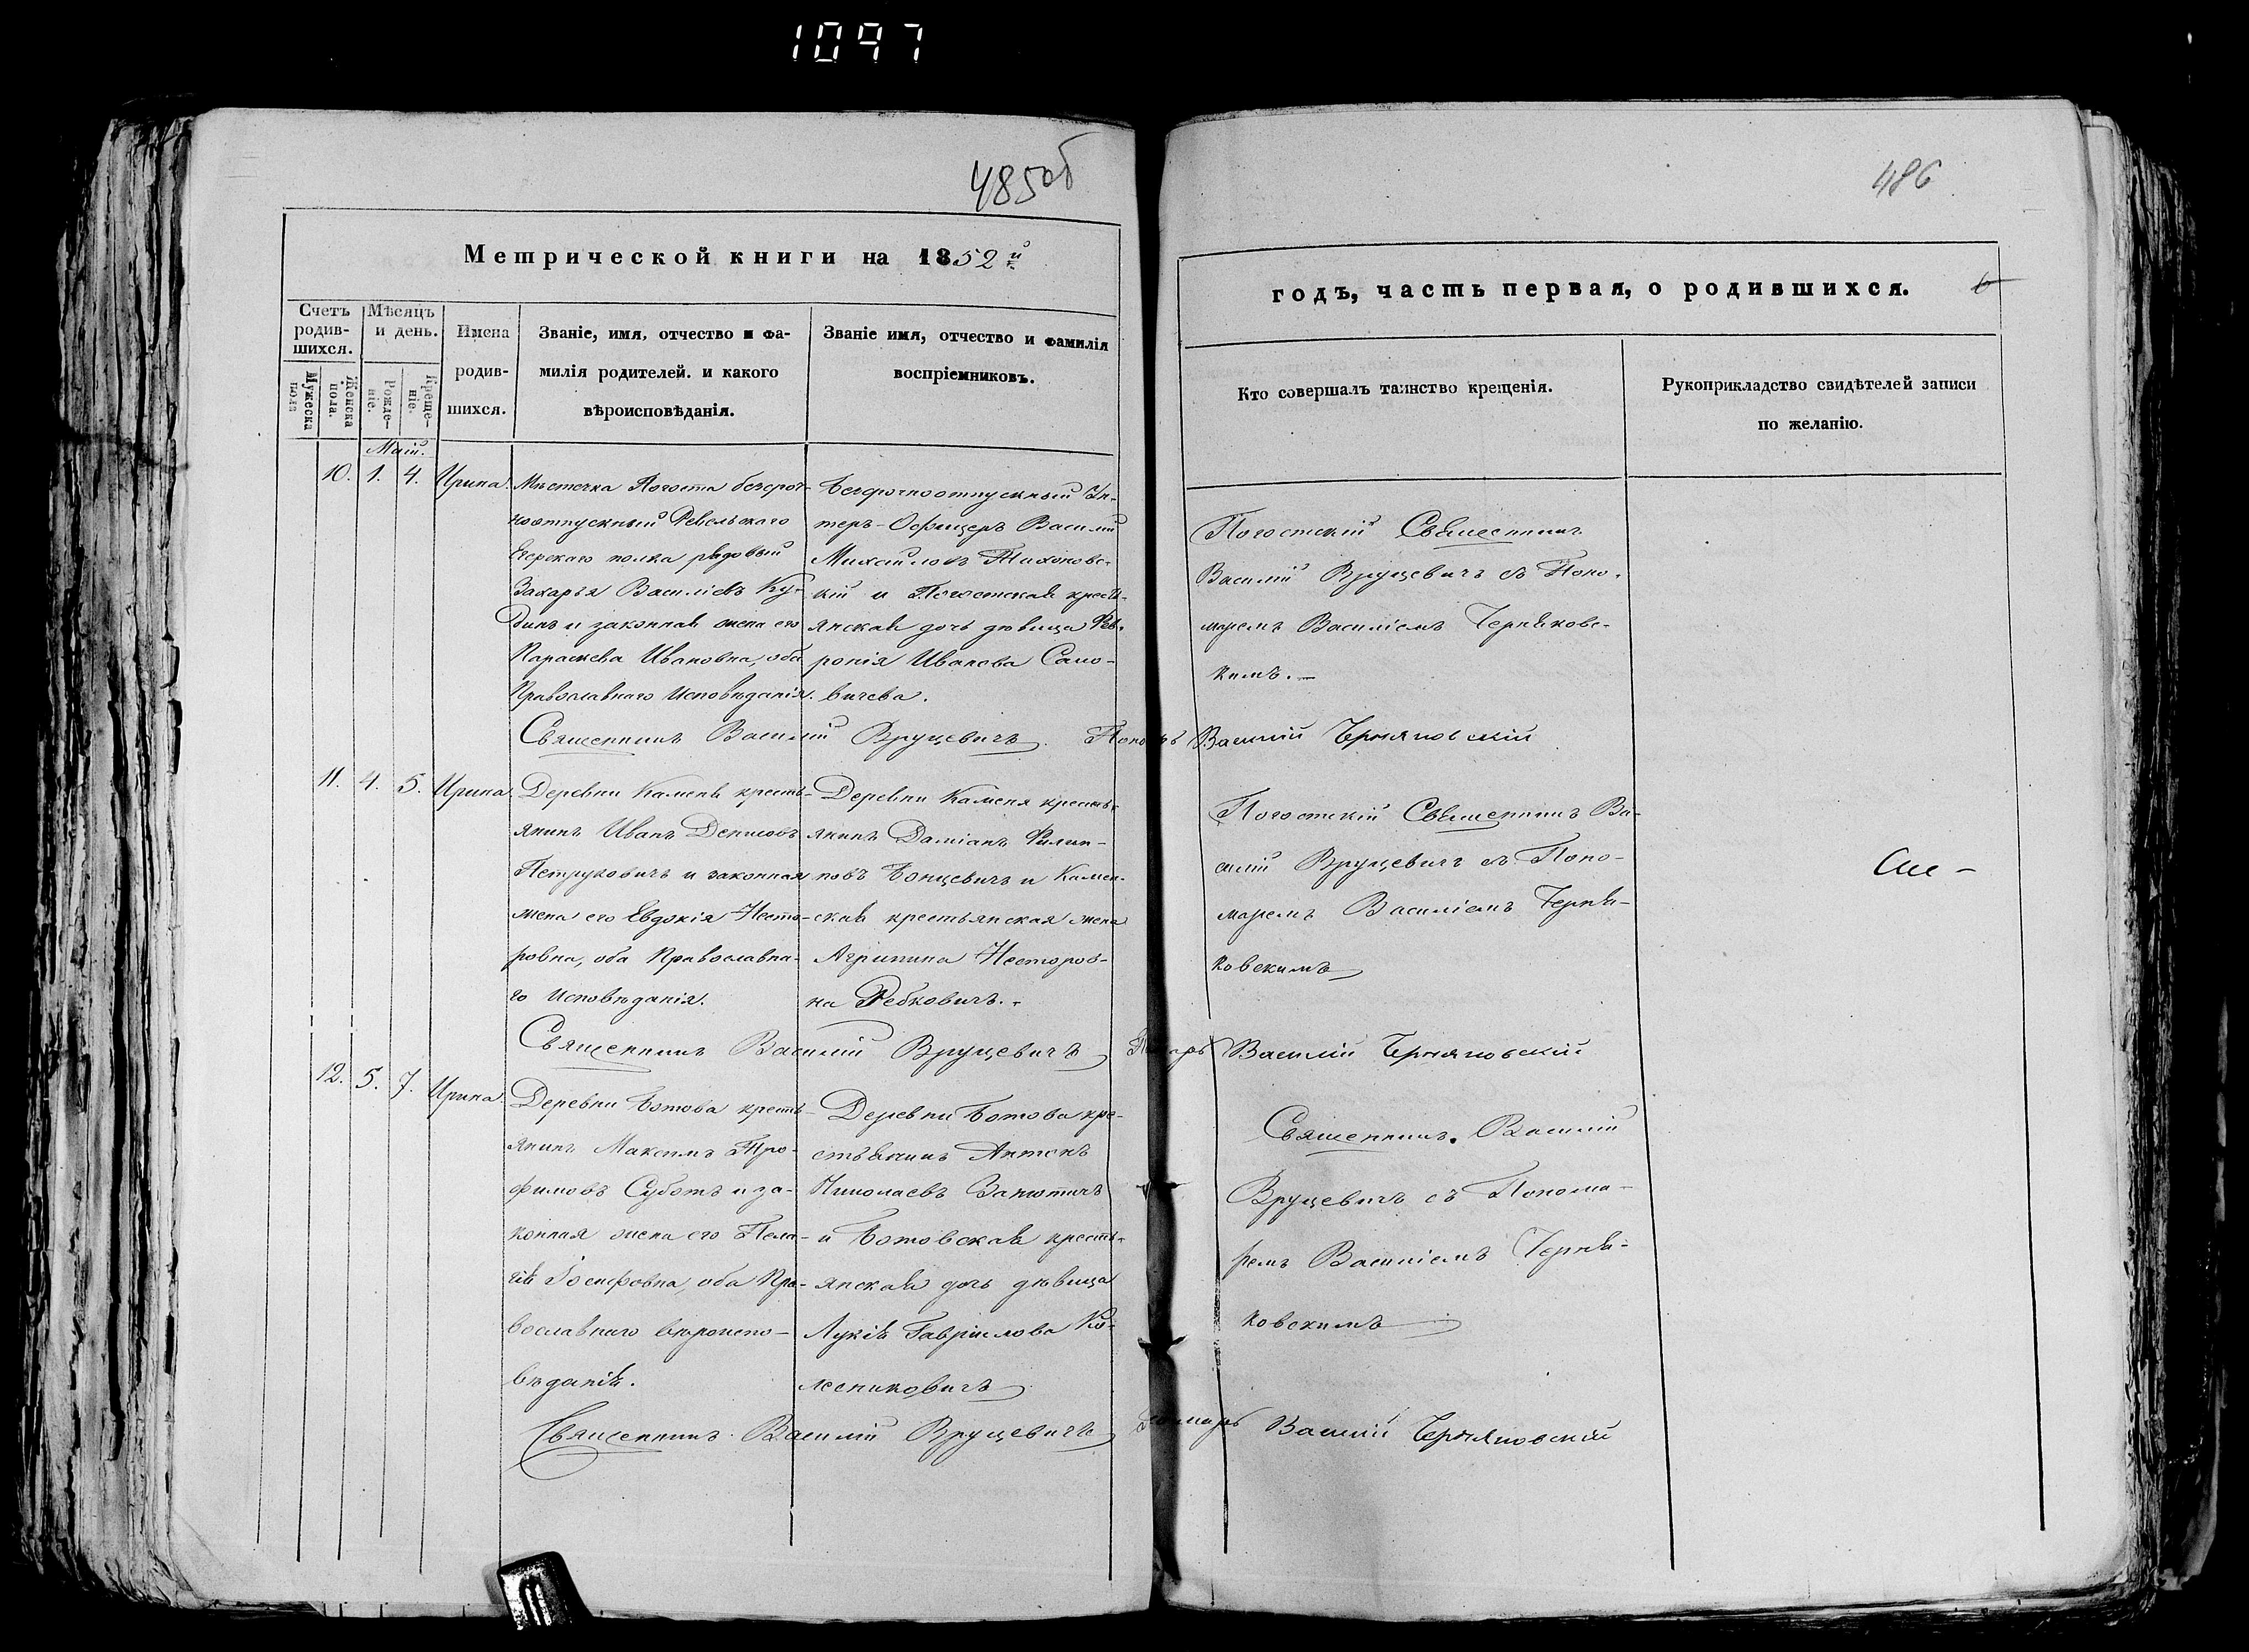 1097
485об
486
Метрической книги на 1852й
годъ, часть первая, о родившихся.
6
Счетъ родив-шихся.
Мужеска пола
Женска пола.
Мѣсяцъ и день.
Рожде-ніе.
Креще-ніе.
Имена
родив-
шихся.
Званіе, имя, отчество и фа-
милія родителей. и какого
вѣроисповѣданія.
Званіе имя, отчество и фамилія
воспріемниковъ.
Кто совершалъ таинство крещенія.
Рукоприкладство свидѣтелей записи
по желанію.
Маій.
10. 1. 4. Ирина.
Мѣстечка Погоста безсроч-
ноотпускный Ревельского
Егерскаго полка рядовый
Захарья Василіевъ Ку-
динъ и законная жена его
Параскева Ивановна, оба
Православнаго Исповѣданія.
Безсрочноотпускный Ун-
теръ-Офицеръ Василій
Михайловъ Тихоновс-
кій и Погостская кресть-
янская дочь дѣвица Фев-
ронія Иванова Само-
вичева.
Погостскій Священникъ
Василій Вруцевичъ съ Поно-
маремъ Василіемъ Черняковс-
кимъ.
Священникъ Василій Вруцевичъ. Василій Черняковскій
11. 4. 5. Ирина.
Деревни Каменя кресть-
янинъ Иванъ Денисовъ
Петруковичъ и законная
жена его Евдокія Несто-
ровна, оба Православна-
го Исповѣданія.
Деревни Каменя кресть-
янинъ Даміанъ Филип-
повъ Бонцевичъ и Камен-
ская крестьянская жена
Агрипина Несторов-
на Ребковичъ.
Погостскій Священникъ Ва-
силій Вруцевичъ съ Поно-
маремъ Василіемъ Черня-
ковскимъ
Священникъ Василій Вруцевичъ Василій Черняковскій
12. 5. 7. Ирина.
Деревни Ботова кресть-
янинъ Максимъ Тро-
фимовъ Суботъ и за-
конная жена его Пела-
гія Іосифовна, оба Пра-
вославнаго вѣроиспо-
вѣданія.
Деревни Ботова кре-
стьянинъ Антонъ
Николаевъ Занютичъ
и Ботовская кресть-
янская дочь дѣвица
Лукія Гавріилова Ко-
лесниковичъ
Священникъ Василій
Вруцевичъ съ Понома-
ремъ Василіемъ Черня-
ковскимъ
Священникъ Василій Вруцевичъ Василій Черняковскій